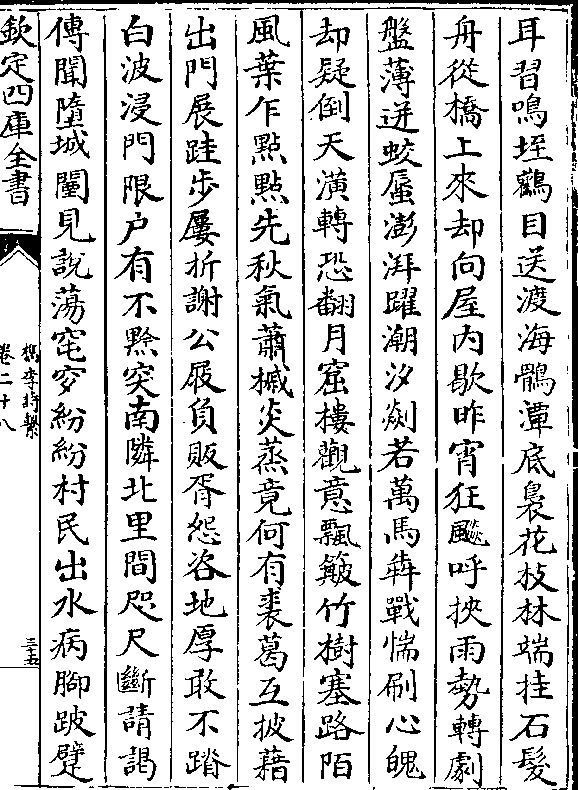 耳習鳴垤鸛目送渡海鶻潭底裊花枝林端挂石髮
舟從橋上來却向屋内歇昨宵狂飈呼挾雨勢轉劇
盤薄迸蛟蜃澎湃躍潮汐剡若萬馬犇戰惴刷心魄
却疑倒天潢轉恐翻月窟樓觀意飄簸竹樹塞路陌
風葉乍點點先秋氣蕭摵炎蒸竟何有裘葛互披藉
出門展跬步屢折謝公屐負販胥怨咨地厚敢不蹐
白波浸門限户有不黔突南隣北里間咫尺斷請謁
傳聞墮城闉見說蕩窀穸紛紛村民出水病腳跛躄
欽定四庫全書
檇李詩繫
卷二十八
三十五